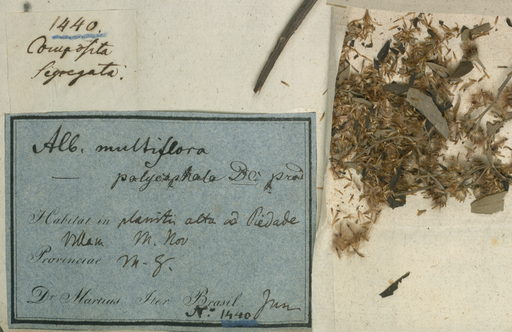 1440.
Composita
Segregata.
Alb. multiflora
— polycephala DC prod
Habitat in planitie alta ad Piedade
Villam M. Nov
Provinciae M. G.
Dr Martius Iter Brasil Jun
N. 1440